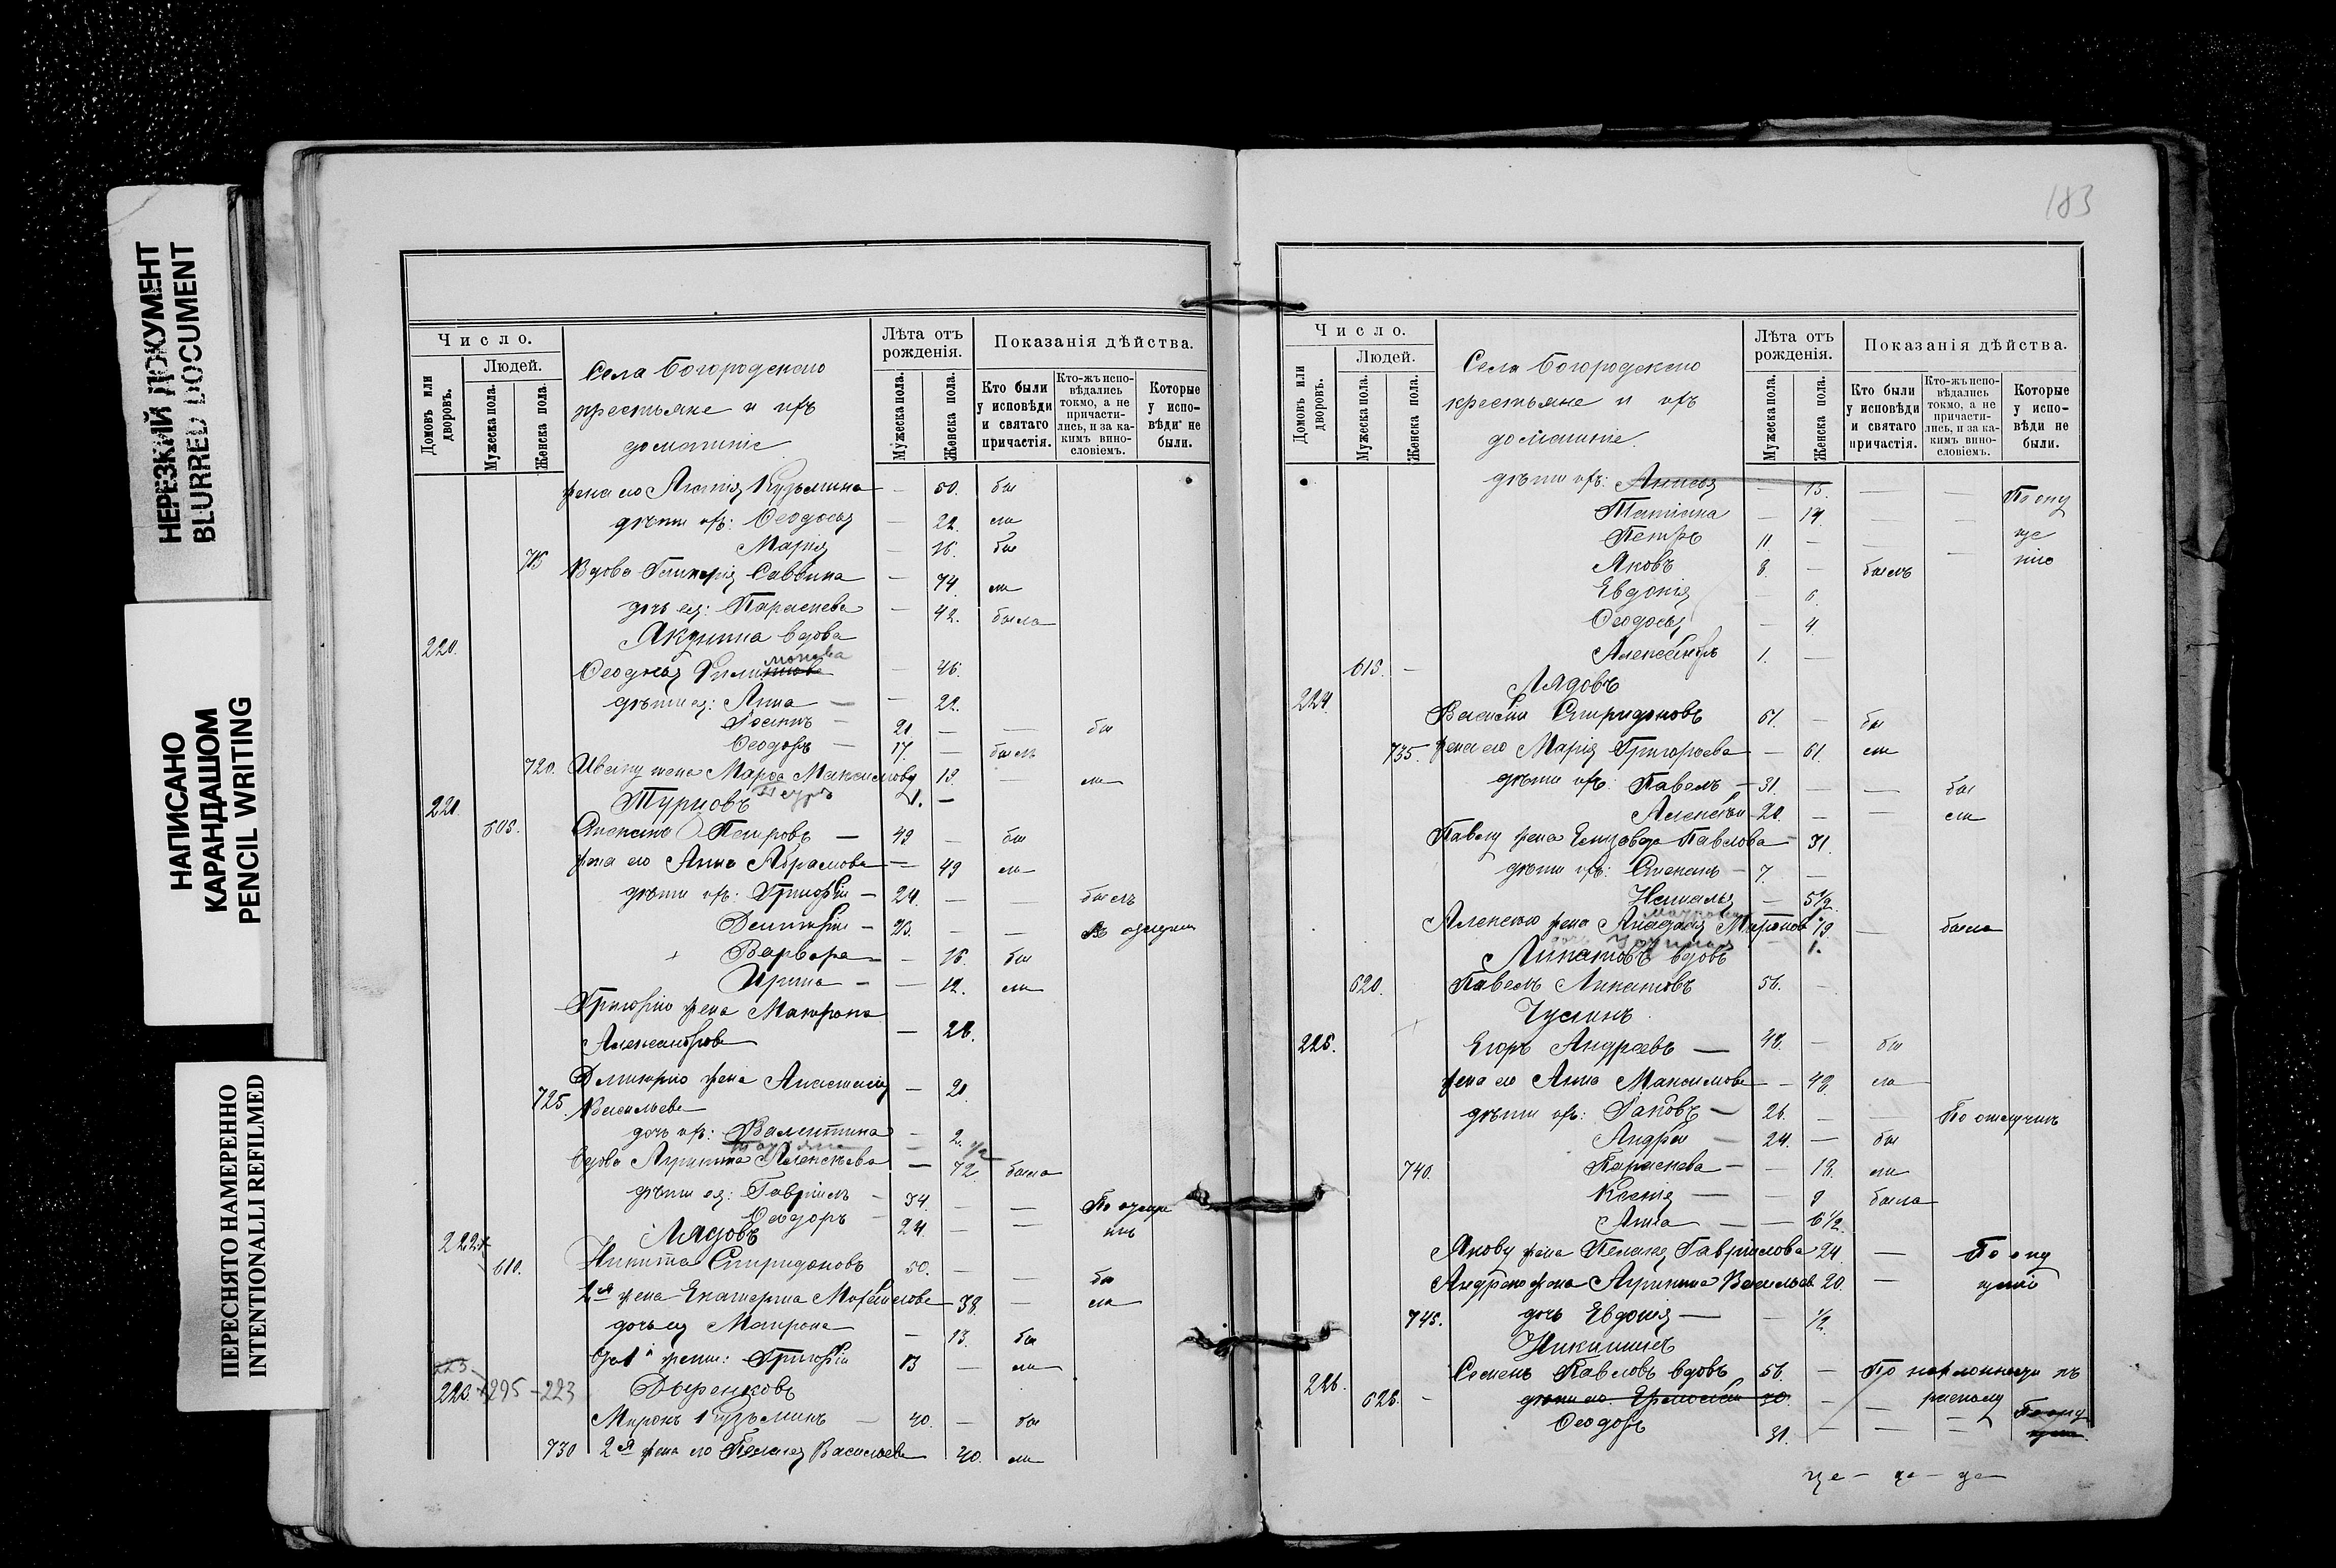 НЕРЕЗКИЙ ДОКУМЕНТ
BLURRED DOCUMENT
НАПИСАНО
КАРАНДАШОМ
PENCIL WRITING
ПЕРЕСНЯТО НАМЕРЕННО
INTENTIONALLI REFILMED
Число.
Домовъ или дворовъ.
Людей.
Мужеска пола.
Женска пола.
Села Богородскаго
крестьяне и ихъ
домашніе
Лѣта отъ рожденія.
Мужеска пола.
Женска пола.
Показанія дѣйства.
Кто были у исповѣди и святаго причастія.
Кто-жъ исповѣдались токмо, а не причастились, и за какимъ винословіемъ.
Которые у исповѣди не были.
жена его Агапія Кузьмина — 50. бы
дѣти ихъ: Ѳеодосія — 22. ли
Марія — 16. бы
715 Вдова Гликерія Саввина — 74. ли
дочь ея: Параскева — 42. была
220. Якунина вдова
Ѳеодосія — 46.
дѣти ея: Анна — 22.
21. — — бы
Ѳеодоръ — 17. — былъ
720. Ивану жена Марѳа Максимова 19. — ли
221. Турковъ 1. —
608. Петровъ — 49 — бы
жена его Анна Абрамова — 49 ли
дѣти ихъ: Григорій — 24. — — былъ
Димитрій — 23. — —
Варвара — — 16. бы
Ирина — — 12. ли
Григорію жена Матрона
Александрова — 28.
Димитрію жена Анастасія — 21.
725. Васильева
дочь ихъ: Валентина — 2.
Вдова Акулина Алексѣева — 72 была
дѣти ея: Гавріилъ — 34. — —
Ѳеодоръ — 24. — —
222 Лядовъ
610. Никита Спиридоновъ 50. — — бы
2я жена Екатерина 38. — ли
дочь ея Матрона — 13. бы
Григорій 13 — ли
223
223. 295 - 223 Дыренковъ
Миронъ Кузьминъ — 40. — бы
730 2я жена его Пелагея Васильева 40. ли
183
Число.
Домовъ или дворовъ.
Людей.
Мужеска пола.
Женска пола.
Села Богородскаго
крестьяне и ихъ
домашніе
Лѣта отъ рожденія.
Мужеска пола.
Женска пола.
Показанія дѣйства.
Кто были у исповѣди и святаго причастія.
Кто-жъ исповѣдались токмо, а не причастились, и за какимъ винословіемъ.
Которые у исповѣди не были.
дѣти ихъ: Анисія — 15. — — По опу
Татіана — 14. — — ще
Петръ 11. — — — нію
Яковъ 8. — былъ
Евдокія — 6.
Ѳеодосія — 4.
Александръ 1. —
615. —
224. Лядовъ
Василій Спиридоновъ 61. — бы
735. жена его Марія Григорьева — 61. ли
дѣти ихъ: Павелъ — 31. — — бы
Алексѣй — 20. — — ли
Павлу жена Елизавета Павлова — 31.
дѣти ихъ: Степанъ — 7. —
Наталья — 5 1/2
Алексѣю жена 19. — была
1.
Липатовъ вдовъ
620. Павелъ Липатовъ 56. —
Чусинъ
225. Егоръ Андреевъ — 48. — бы
жена его Анна Максимова — 48. ла
дѣти ихъ: Іаковъ — 26. — — По отлучкѣ
Андрей — 24. — бы
740. Параскева — — 18. ли
Ксенія — — 9 была
Анна — — 6 1/2.
Якову жена Пелагея Гавріилова 24. — По опу
Андрею жена Акулина Васильев. 20. — щенію
745. дочь Евдокія — — 1/2.
Никишинъ
226. Семенъ Павловъ вдовъ 56. — По наклонности къ
625. — дѣти его: Ермолай 30. — — расколу По опу
Ѳеодоръ 31. — — — щен.
ще — ще — ще —